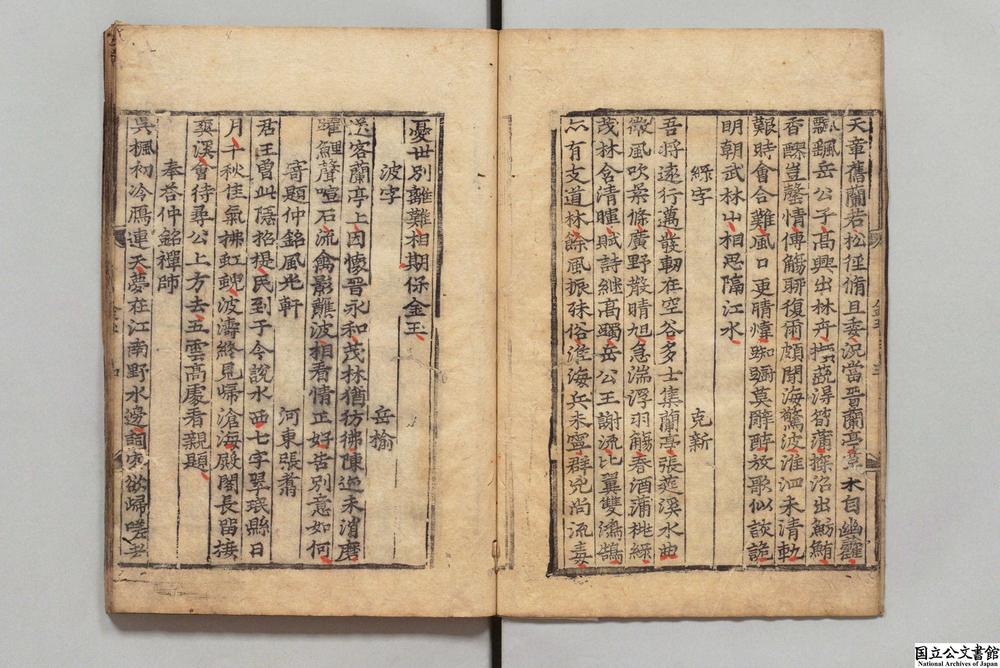 天童舊蘭若松徑脩且委況當晉蘭亭景木自幽靃
飄飄岳公子高興出林卉擷蔬淂笋蒲篠沼出魴鮪
香醪豈罄情傳觴聊復爾頗聞海驚波淮泗未清軌
艱時會合難風口更晴煒踟蹰莫辭醉放歌似詼詭
明朝武林山相思隔江水
綠字
克新
吾將遂行邁發軔在空谷多士集蘭亭張筵溪水曲
微風吹柔條廣野散晴旭急湍浮羽觴春酒蒲桃綠
茂林含清暉賦詩繼高躅岳公王謝流比翼雙鴻鵠
亦有支道林餘風振殊俗淮海兵未寧群兇尚流毒
憂世別離難相期保金玉
波字
岳榆
送客蘭亭上因懷晉永和茂林猶彷彿陳迹未消磨
躍鯉聲喧石流禽影蘸波相看情正好告別意如何
寄題仲銘風光軒
河東張翥
君王曾此隱招提民到于今說水西七字翠珉縣日
月千秋佳氣拂虹蜺波濤終見歸滄海殿閣長留接
爽溪會待尋公上方去五雲高處看親題
奉荅仲銘禪師
吳楓初冷鴈連天夢在江南野水邊詞客欲歸嗟老